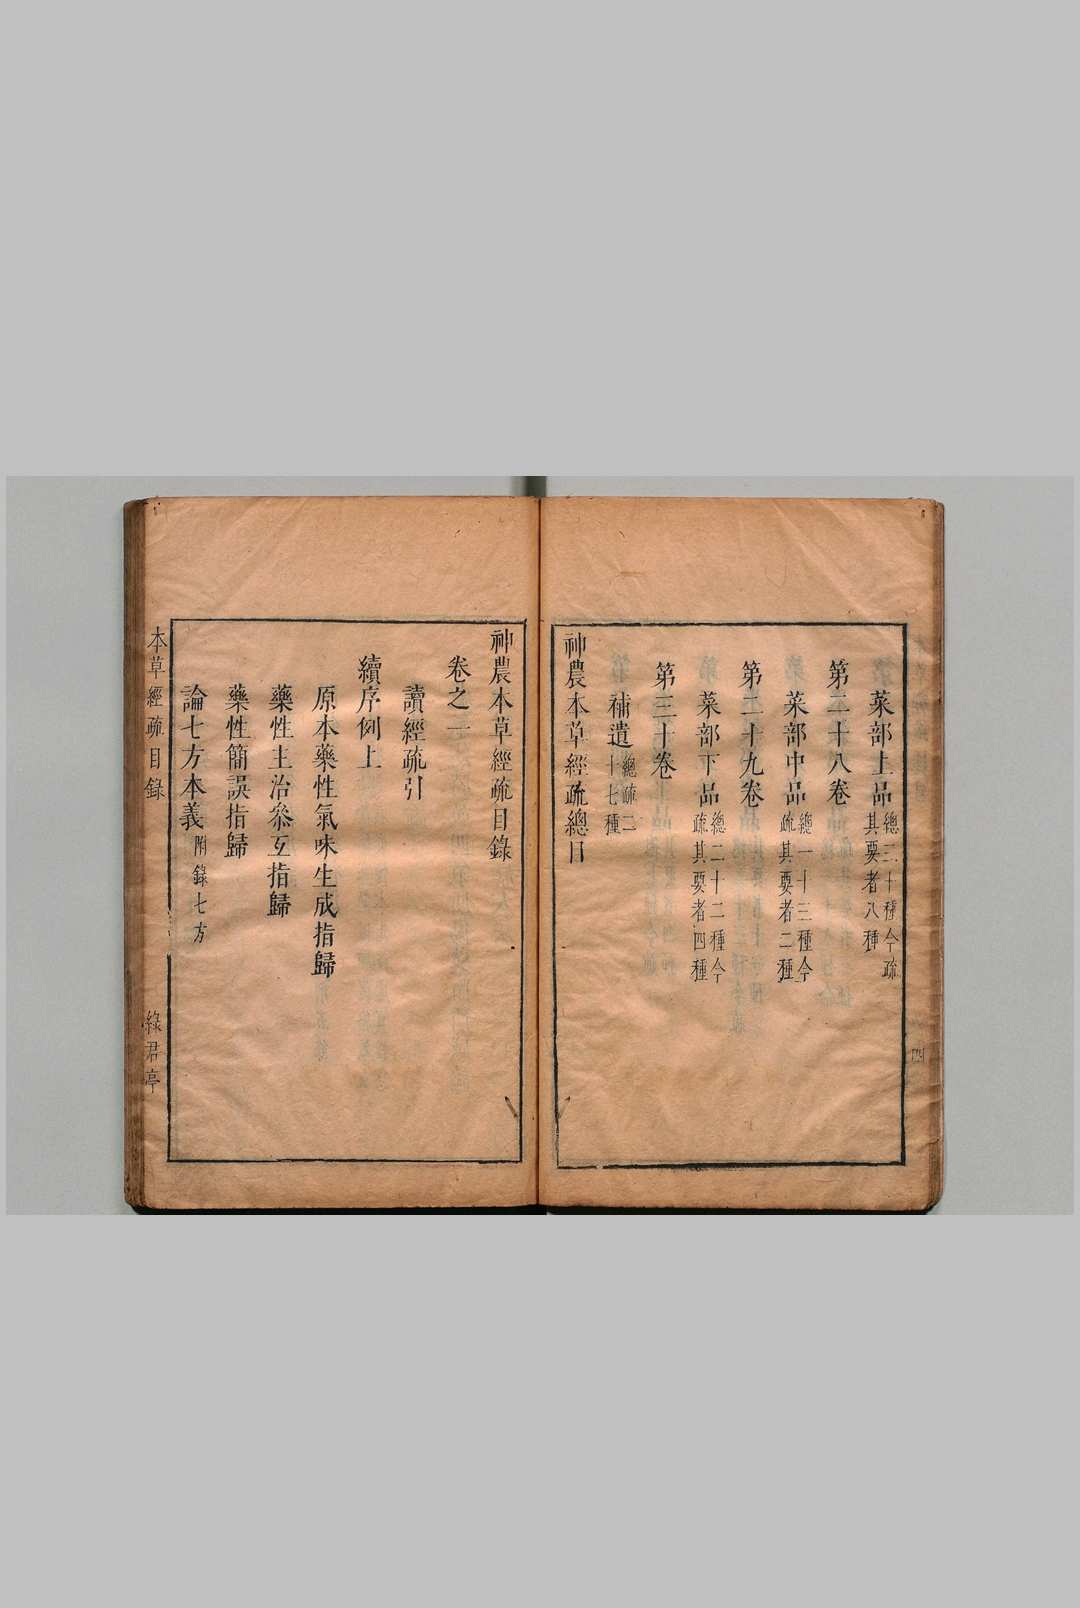 菜部上品總三十種今疏其要者八種
第二十八卷
菜部中品總一十三種今疏其要者二種
第二十九卷
菜部下品總二十二種今疏其要者四種
第三十卷
補遺總疏二十七種
神農本草經疏總目
四
神農本草經疏目錄
卷之一
讀經疏引
續序例上
原本藥性氣味生成指歸
藥性主治參互指歸
藥性簡誤指歸
論七方本義附錄七方
本草經疏目錄
綠君亭